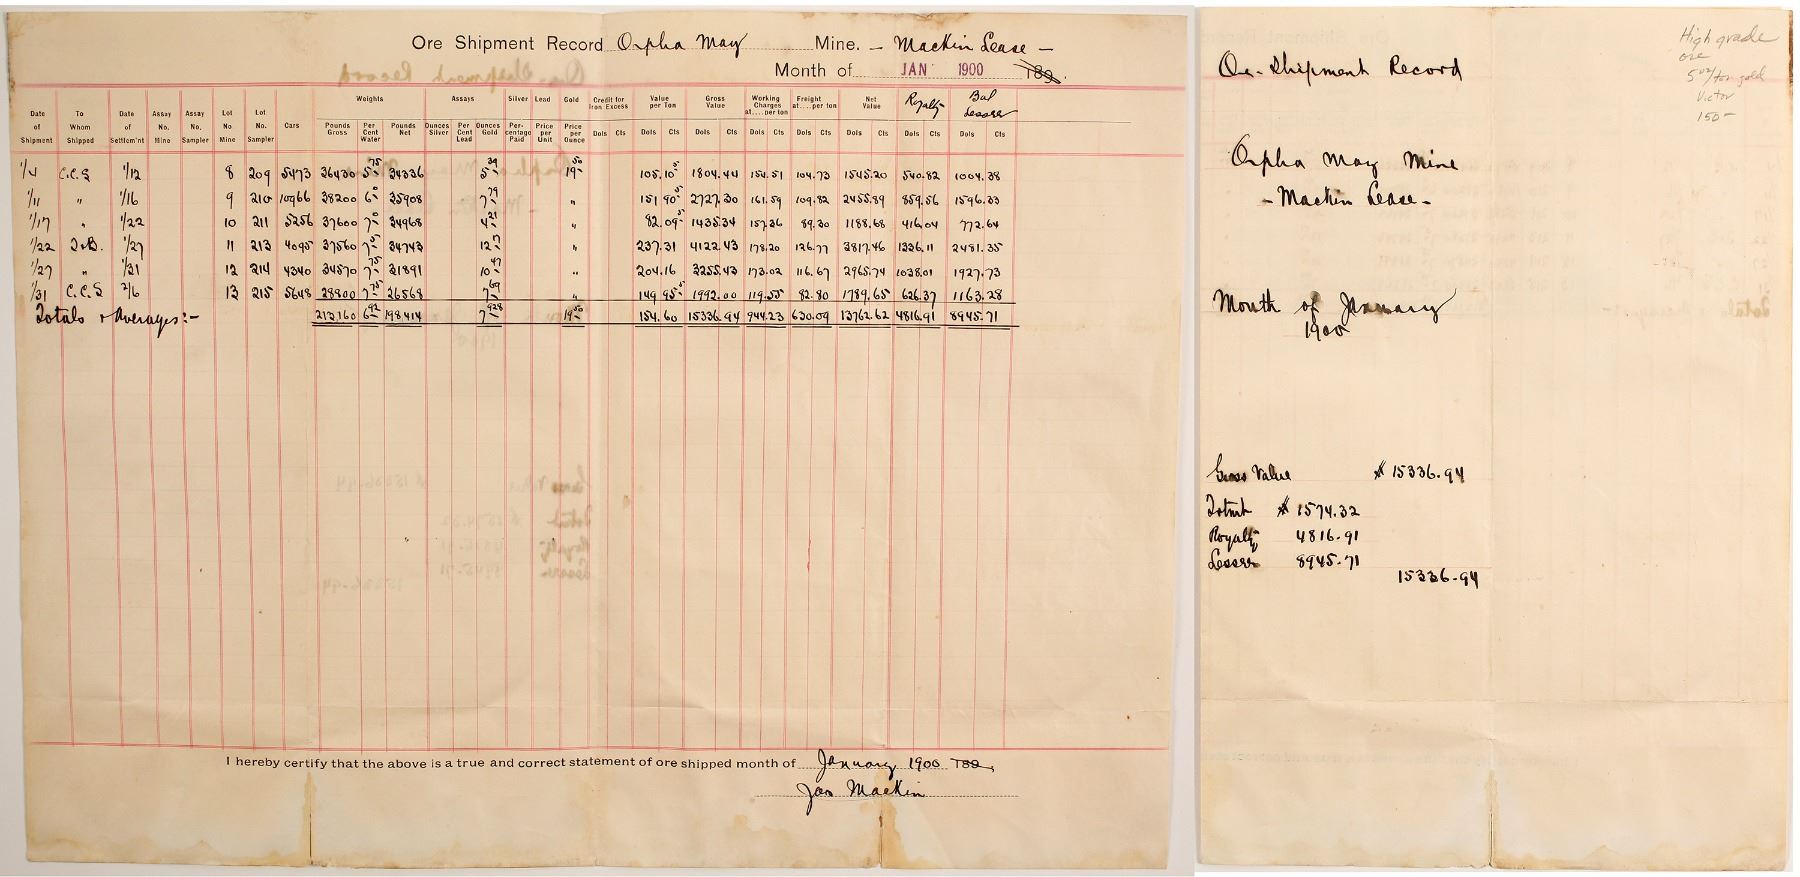 Ore Shipment Record Orpha May Mine. - Mackin Lease -
Month of JAN 1900 189 .
Date of Shipment To Whom Shipped Date of Settlem'nt Assay No. Mine Assay No. Sampler Lot No Mine Lot No. Sampler Cars Weights Pounds Gross Per Cent Water Pounds Net Assays Ounces Silver Per Cent Lead Ounces Gold Silver Per-centage Paid Lead Price per Unit Gold Price per Ounce Credit for Iron Excess Dols Cts Value per Ton Dols Cts Gross Value Dols Cts Working Charges at....per ton Dols Cts Freight at....per ton Dols Cts Net Value Dols Cts Royalty Dols Cts Bal Lessee Dols Cts
1/4 C.C.S 1/12 8 209 5473 36430 5 75 34336 5 39 19 50 105.10 5 1804.44 154.51 104.73 1545.20 540.82 1004.38
1/11 " 1/16 9 210 10966 38200 6 0 35908 7 79 " 151 90 5 2727.30 161.59 109.82 2455.89 859.56 1596.33
1/17 " 1/22 10 211 5256 37600 7 0 34968 4 21 " 82.09 5 1435.34 157.36 89.30 1188.68 416.04 772.64
1/22 1/27 11 213 4095 37560 7 5 34743 12 17 " 237.31 4122.43 178.20 126.77 3817.46 1336.11 2481.35
1/27 " 1/31 12 214 4340 34570 7 75 31891 10 47 " 204.16 3255.43 173.02 116.67 2965.74 1038.01 1927.73
1/31 C.C.S 2/6 13 215 5648 28800 7 75 26568 7 69 " 149 95 5 1992.00 119.55 82.80 1789.65 626.37 1163.28
Totals & Averages:- 213160 6 92 198414 7 928 19 50 154.60 15336.94 944.23 630.09 13762.62 4816.91 8945.71
I hereby certify that the above is a true and correct statement of ore shipped month of January 1900 189 ,
Jas Mackin
High grade
ore
5 oz/ton gold
Victor
150-
Ore-Shipment Record
Orpha May Mine
- Mackin Lease -
Month of January
1900
Gross Value $ 15336.94
$ 1574.32
Royalty 4816.91
Lessee 8945.71
15336.94